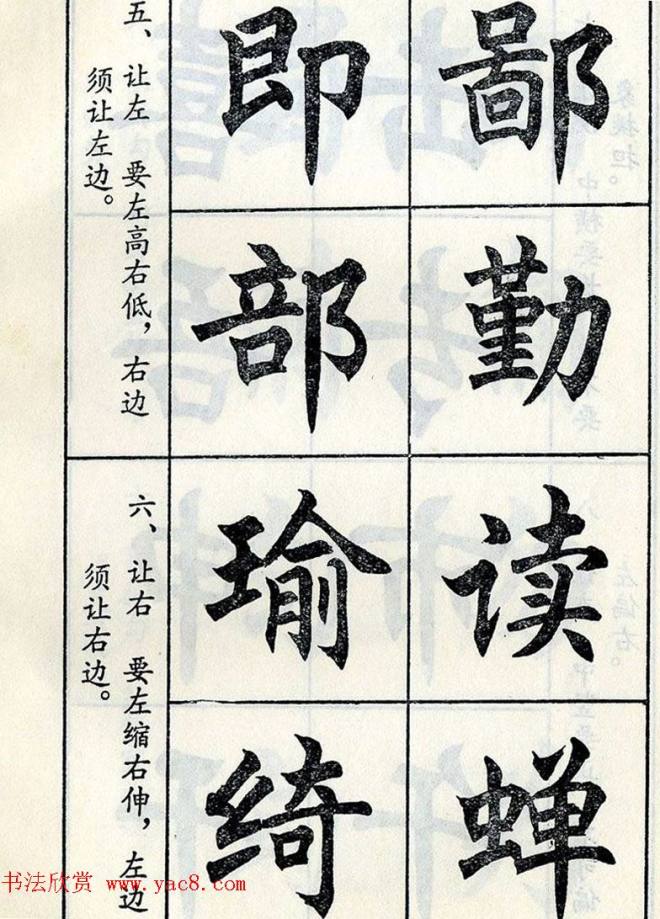 五、让左 要左高右低，右边
须让左边。
鄙勤
即部
六、让右 要左缩右伸，左边
须让右边。
读蝉
瑜绮
书法欣赏 www.yac8.com